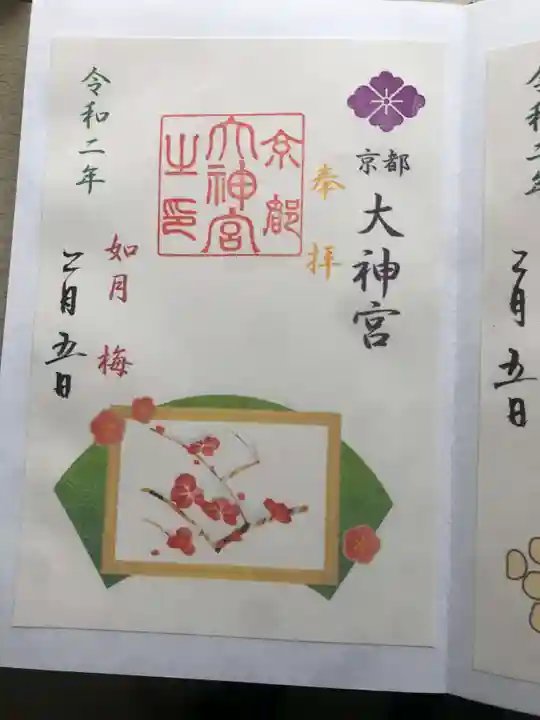 京都
大神宮
奉拝
京都
大神宮
之印
如月 梅
令和二年
二月五日
令和二年
二月五日